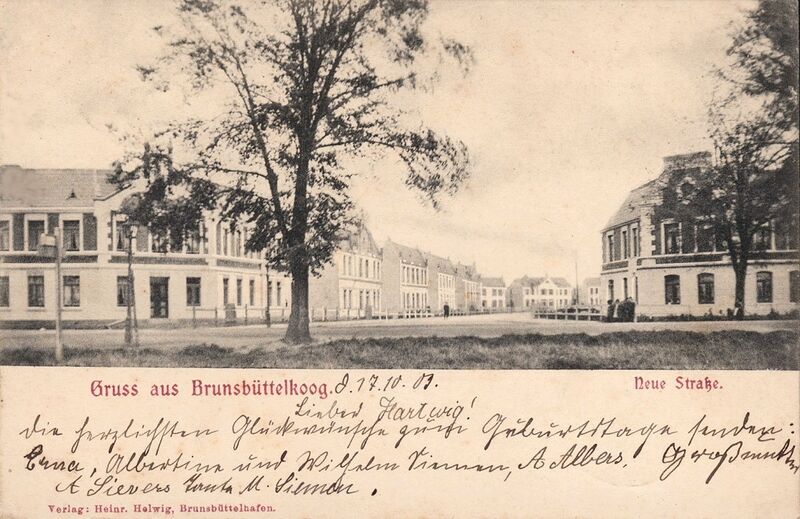 Gruss aus Brunsbüttelkoog. d. 17.10.03.
Neue Straße.
Lieber Hartwig!
die herzlichsten Glückwünsche zum Geburtstage senden:
Erna, Albertine und Wilhelm Siemen, A Albers. Großmutter
A Sievers Tante M. Siemen.
Verlag: Heinr. Helwig, Brunsbüttelhafen.